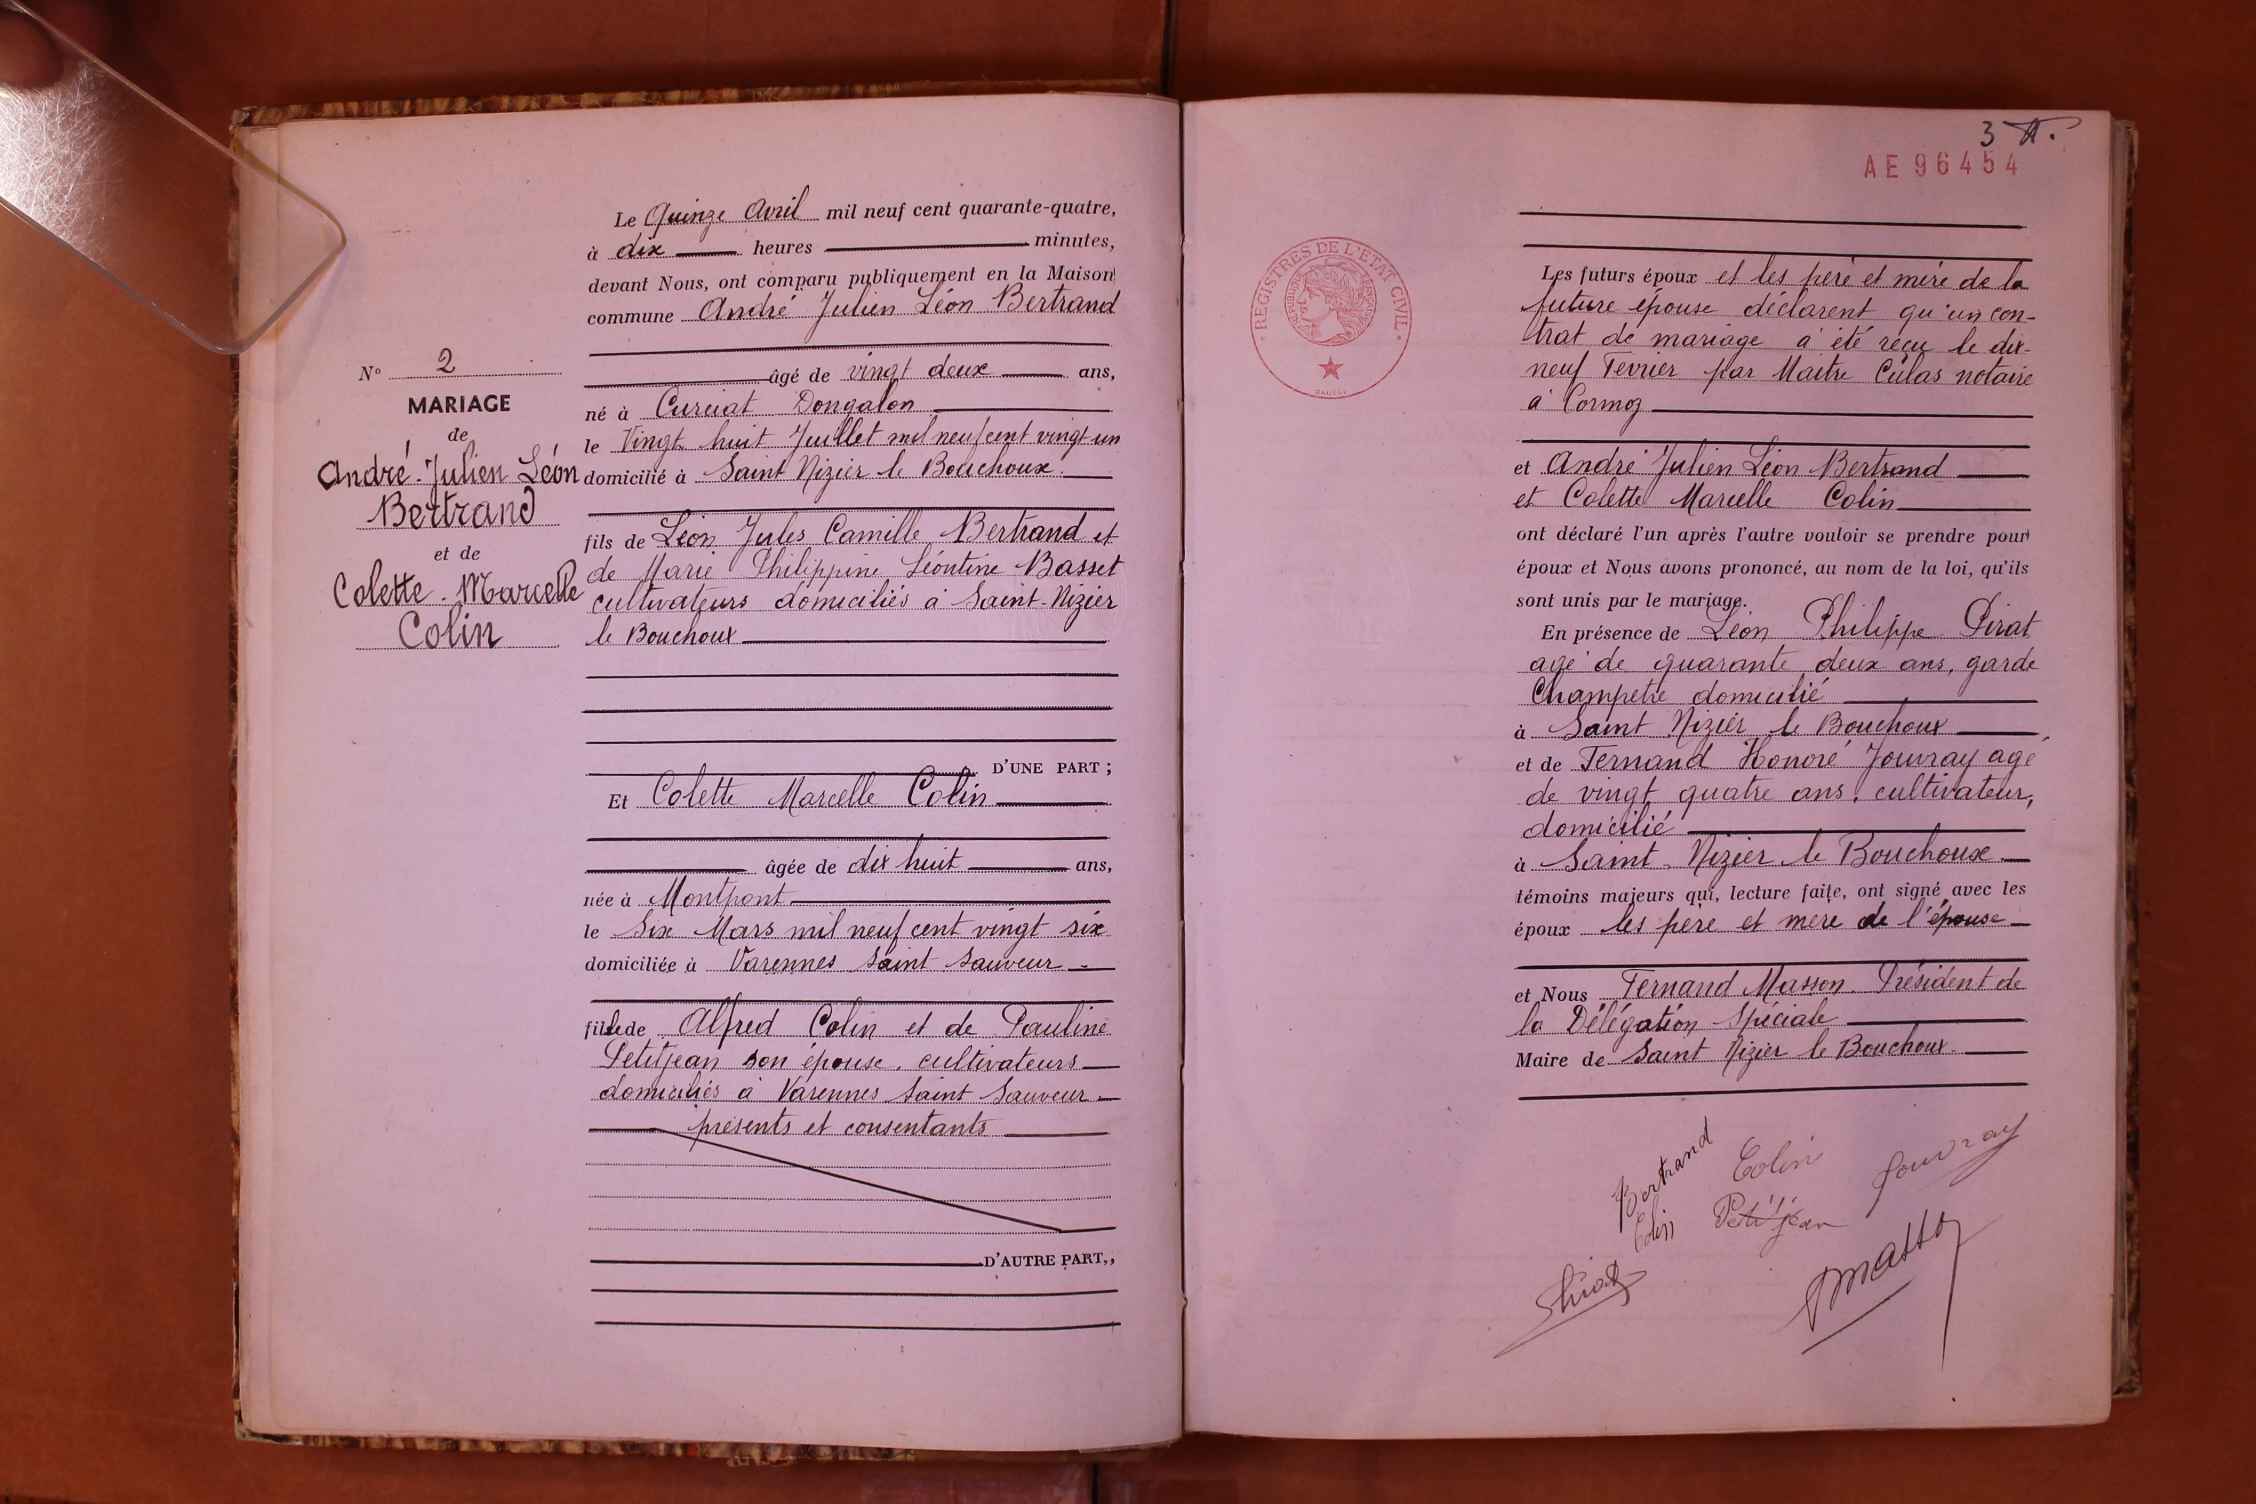 N° 2
MARIAGE
de
André. Julien Léon
Bertrand
et de
Colette. Marcelle
Colin
Le Quinze Avril mil neuf cent quarante-quatre,
à dix heures minutes,
devant Nous, ont comparu publiquement en la Maison
commune André Julien Léon Bertrand
âgé de vingt deux ans,
né à Curciat Dongalon
le Vingt huit Juillet mil neuf cent vingt un
domicilié à Saint Nizier le Bouchoux.
fils de Léon Jules Camille Bertrand et
de Marie Philippine Léontine Basset
cultivateurs domiciliés à Saint-Nizier
le Bouchoux
D'UNE PART ;
Et Colette Marcelle Colin
âgée de dix huit ans,
née à Montpont
le Six Mars mil neuf cent vingt six
domiciliée à Varennes Saint Sauveur
fille de Alfred Colin et de Pauline
Petitjean son épouse. cultivateurs
domiciliés à Varennes Saint Sauveur
présents et consentants
D'AUTRE PART,,
3
AE 96454
REGISTRES DE L'ETAT CIVIL
Les futurs époux et les père et mère de la
future épouse déclarent qu'un con-
trat de mariage a été reçu le dix-
neuf Fevrier par Maitre Culas notaire
à Cormoz
et André Julien Léon Bertrand
et Colette Marcelle Colin
ont déclaré l'un après l'autre vouloir se prendre pour
époux et Nous avons prononcé, au nom de la loi, qu'ils
sont unis par le mariage.
En présence de Léon Philippe Pirat
agé de quarante deux ans, garde
Champetre domicilié
à Saint Nizier le Bouchoux
et de Fernand Honoré Jouvray agé
de vingt quatre ans. cultivateur,
domicilié
à Saint Nizier le Bouchoux
témoins majeurs qui, lecture faite, ont signé avec les
époux les père et mere de l'épouse
et Nous Fernand Masson. Président de
la Délégation Spéciale
Maire de Saint Nizier le Bouchoux.
Bertrand
Colin
Jouvray
Colin
Petitjean